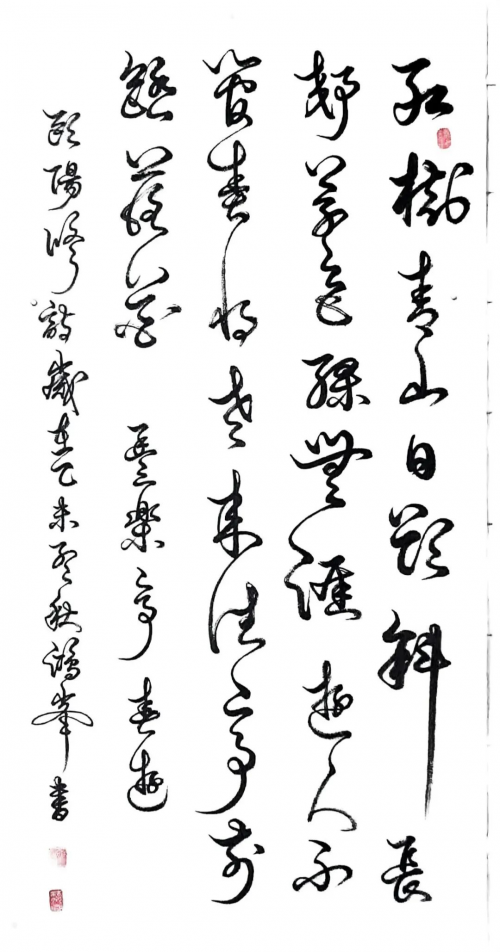 紅樹青山日欲斜長
郊草色綠無涯遊人不
管春将老来往亭前
踏落花 豐樂亭春遊
歐陽修詩歲在乙未秋鴻峯書